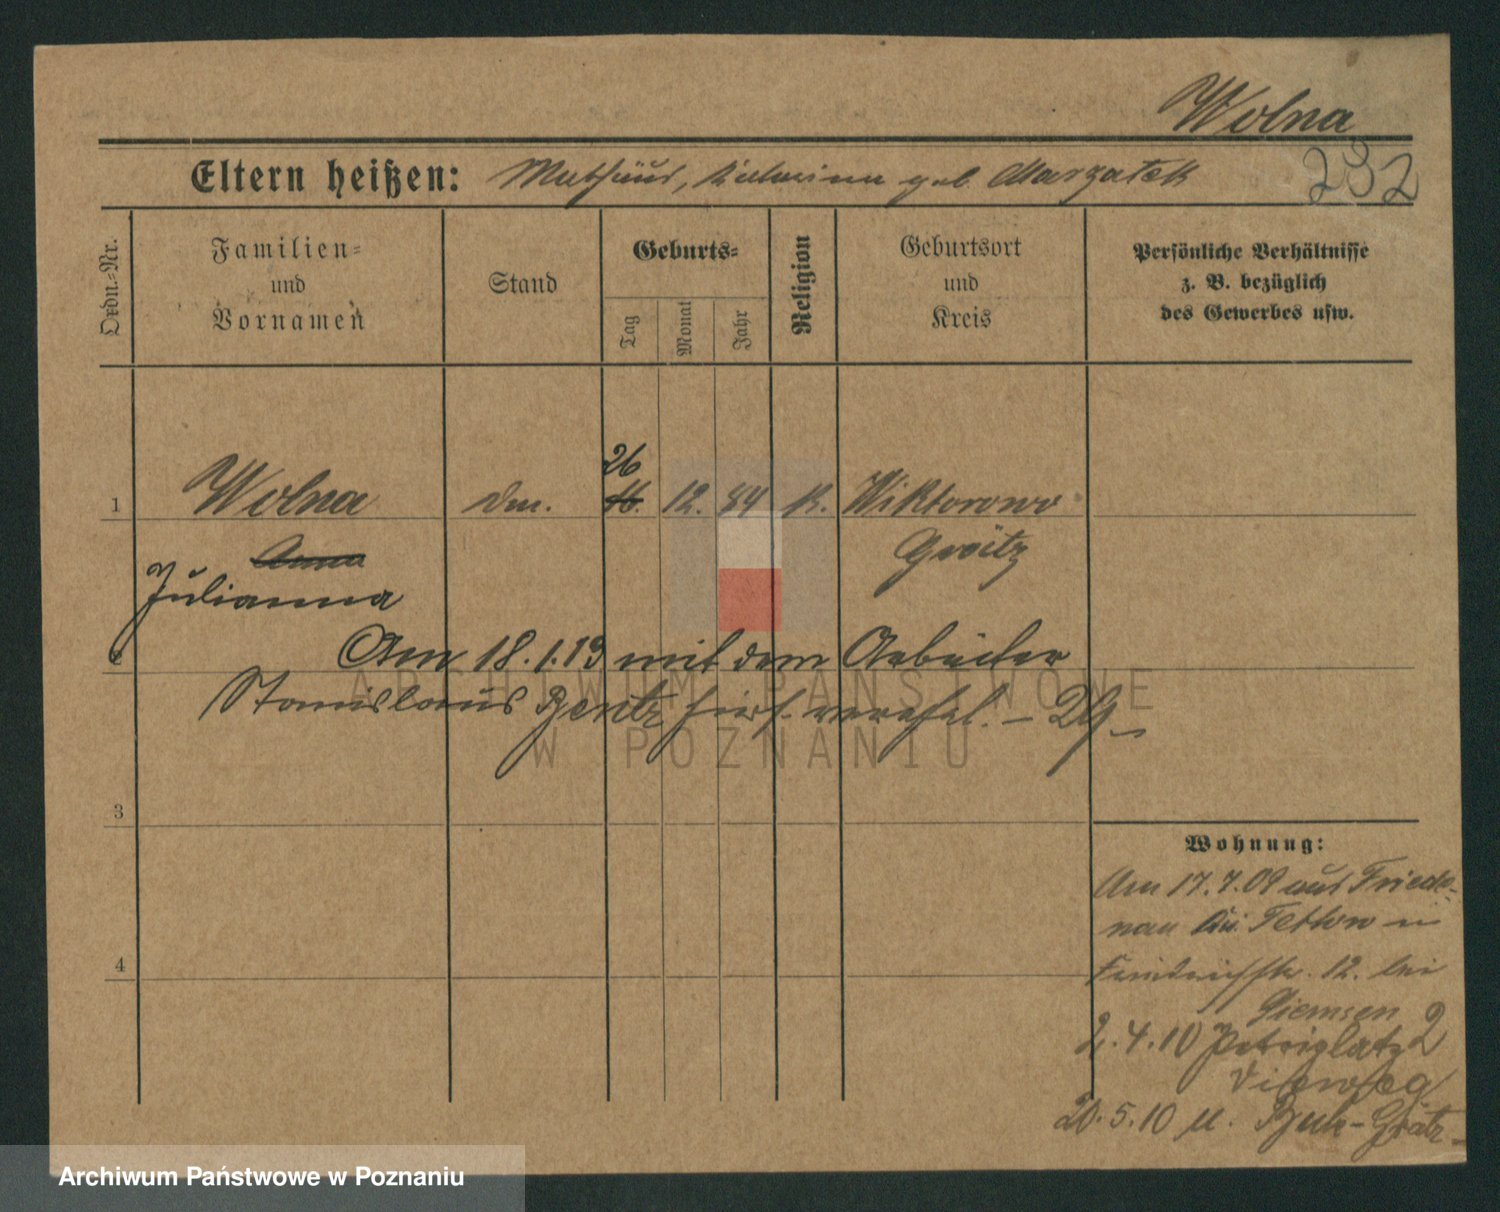 Wolna
Eltern heißen: Mathäus, Katharina geb. Marzatek
232
Ordn.-Nr.
Familien-
und
Vornamen
Stand
Geburts-
Tag
Monat
Jahr
Religion
Geburtsort
und
Kreis
Persönliche Verhältnisse
z. B. bezüglich
des Gewerbes usw.
26
1 Wolna 12. 84 K. Wiktorowo
Grätz
Anna
Julianna
2 Am 18.1.13 mit dem Arbeiter
Stanislaus hier verehel.
ARCHIWUM PAŃSTWOWE
W POZNANIU
3
Wohnung:
Am 17.7.09 aus Friede-
nau Teltow in
4
Friedrichstr. 12. bei
Giemsen
2.4.10 Petriplatz 2
Vierweg
20.5.10 n. Buk-Grätz
Archiwum Państwowe w Poznaniu